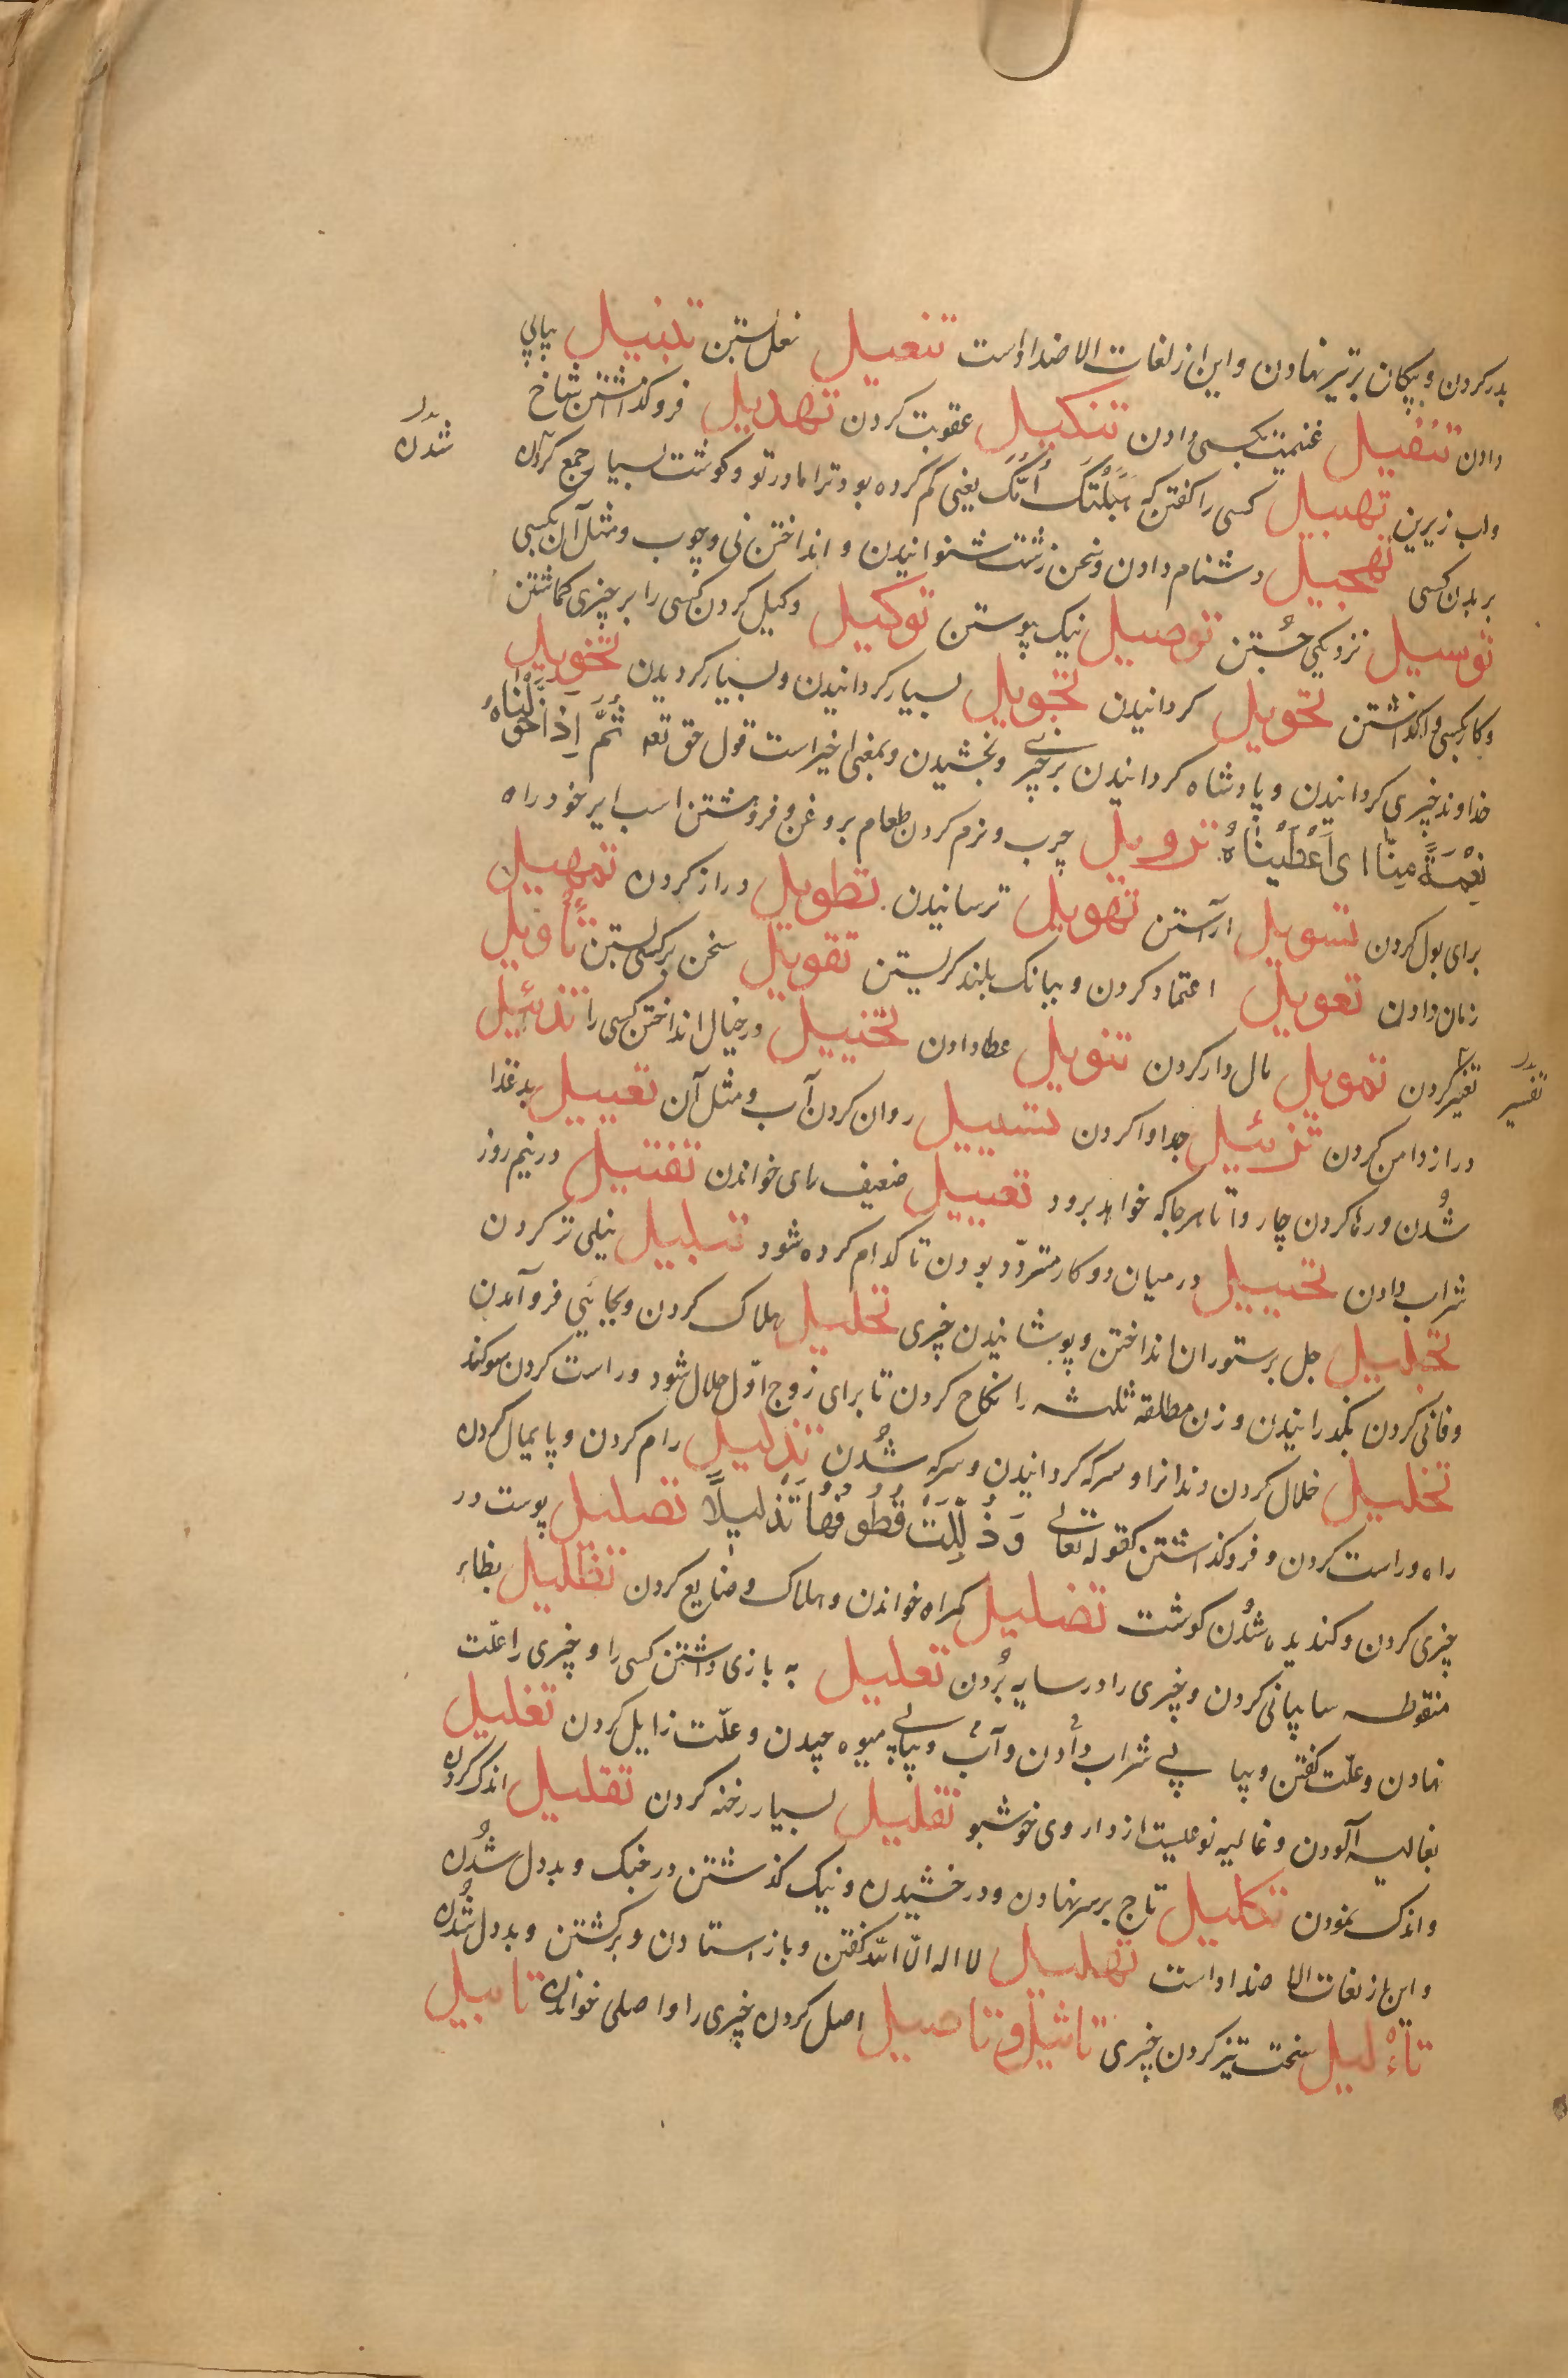 بدر کردن و پیکان بر تیر نهادن و این از لغات الاضداد است تنعیل نعل بستن تنبیل پیاپی
دادن تنفیل غنیمت بکسی دادن تنکیل عقوبت کردن تهدیل فروگذاشتن شاخ
واب زیرین تهبیل کسی را گفتن که هَبِلَتْكَ اُمُّكَ یعنی گم کرده بود ترا مادر تو و گوشت بسیار جمع کردن
بدل شدن
بر بدن کسی تهجیل دشنام دادن و سخن زشت شنوانیدن و انداختن نی و چوب و مثل آن بکسی
توسیل نزدیکی جُستن توصیل نیک پیوستن توکیل وکیل کردن کسی را بر چیزی گماشتن
و کار بکسی واگذاشتن تحویل گردانیدن تجویل بسیار گردانیدن و بسیار گردیدن تخویل
خداوند چیزی گردانیدن و پادشاه گردانیدن بر چیزے و بخشیدن و بمعنی اخیر است قول حق تعه ثُمَّ اِذَا خَوَّلْنَاهُ
نِعْمَةً مِنَّا ای اَعْطَیْنَاهُ تزویل چرب و نرم کردن طعام بروغن و فروهشتن اسب ایر خود راه
برای بول کردن تسویل آراستن تهویل ترسانیدن تطویل دراز کردن تمهیل
زمان دادن تعویل اعتماد کردن و ببانک بلند گریستن تقویل سخن بر کسی بستن تأویل
تغییر کردن تمویل مال دار کردن تنویل عطا دادن تخییل در خیال انداختن کسی را تذئیل
بدل تفسیر
دراز دامن کردن تزئیل جدا وا کردن تسییل روان کردن آب و مثل آن تعییل بد غذا
شُدن و رها کردن چاروا تا هر جا که خواهد برود تفییل ضعیف رای خواندن تقییل در نیم روز
شراب دادن تخییل در میان دو کار متردّد بودن تا کدام کرده شود تبلیل نیکی تر کردن
تجلیل جل بر ستوران انداختن و پوشانیدن چیزی تحلیل هلاک کردن و بجائی فرو آمدن
و فانی کردن بگذرانیدن و زن مطلقه ثلثه را نکاح کردن تا برای زوج اوّل حلال شود و راست کردن سوکند
تخلیل خلال کردن دندانرا و سرکه گردانیدن و سرکه شُدن تذلیل رام کردن و پایمال کردن
راه و راست کردن و فروگذاشتن کقوله تعالی وَ ذُلِّلَتْ قُطُوفُهَا تَذْلِیلًا تصلیل پوست در
چیزی کردن و گندیده شُدن گوشت تضلیل گمراه خواندن و هلاک و ضایع کردن تظلیل بظاء
منقوطه سایبانی کردن و چیزی را در سایه بُردن تعلیل به بازی داشتن کسی را و چیزی را علّت
نهادن و علّت گفتن و پیا پی شراب دادن و آب و پیاپی میوه چیدن و علّت زایل کردن تغلیل
بغالیه آلودن و غالیه نوعیست از داروی خوشبو تفلیل بسیار رخنه کردن تقلیل اندک کردن
و اندک نمودن تکلیل تاج بر سر نهادن و درخشیدن و نیک گذشتن در جنک و بددل شُدن
و این از لغات الاضداد است تهلیل لا اله الّا اللّه گفتن و باز استادن و برگشتن و بددل شُدن
تأْلیل سخت تیز کردن چیزی تاثیل و تاصیل اصل کردن چیزی را و اصلی خواندن تابیل